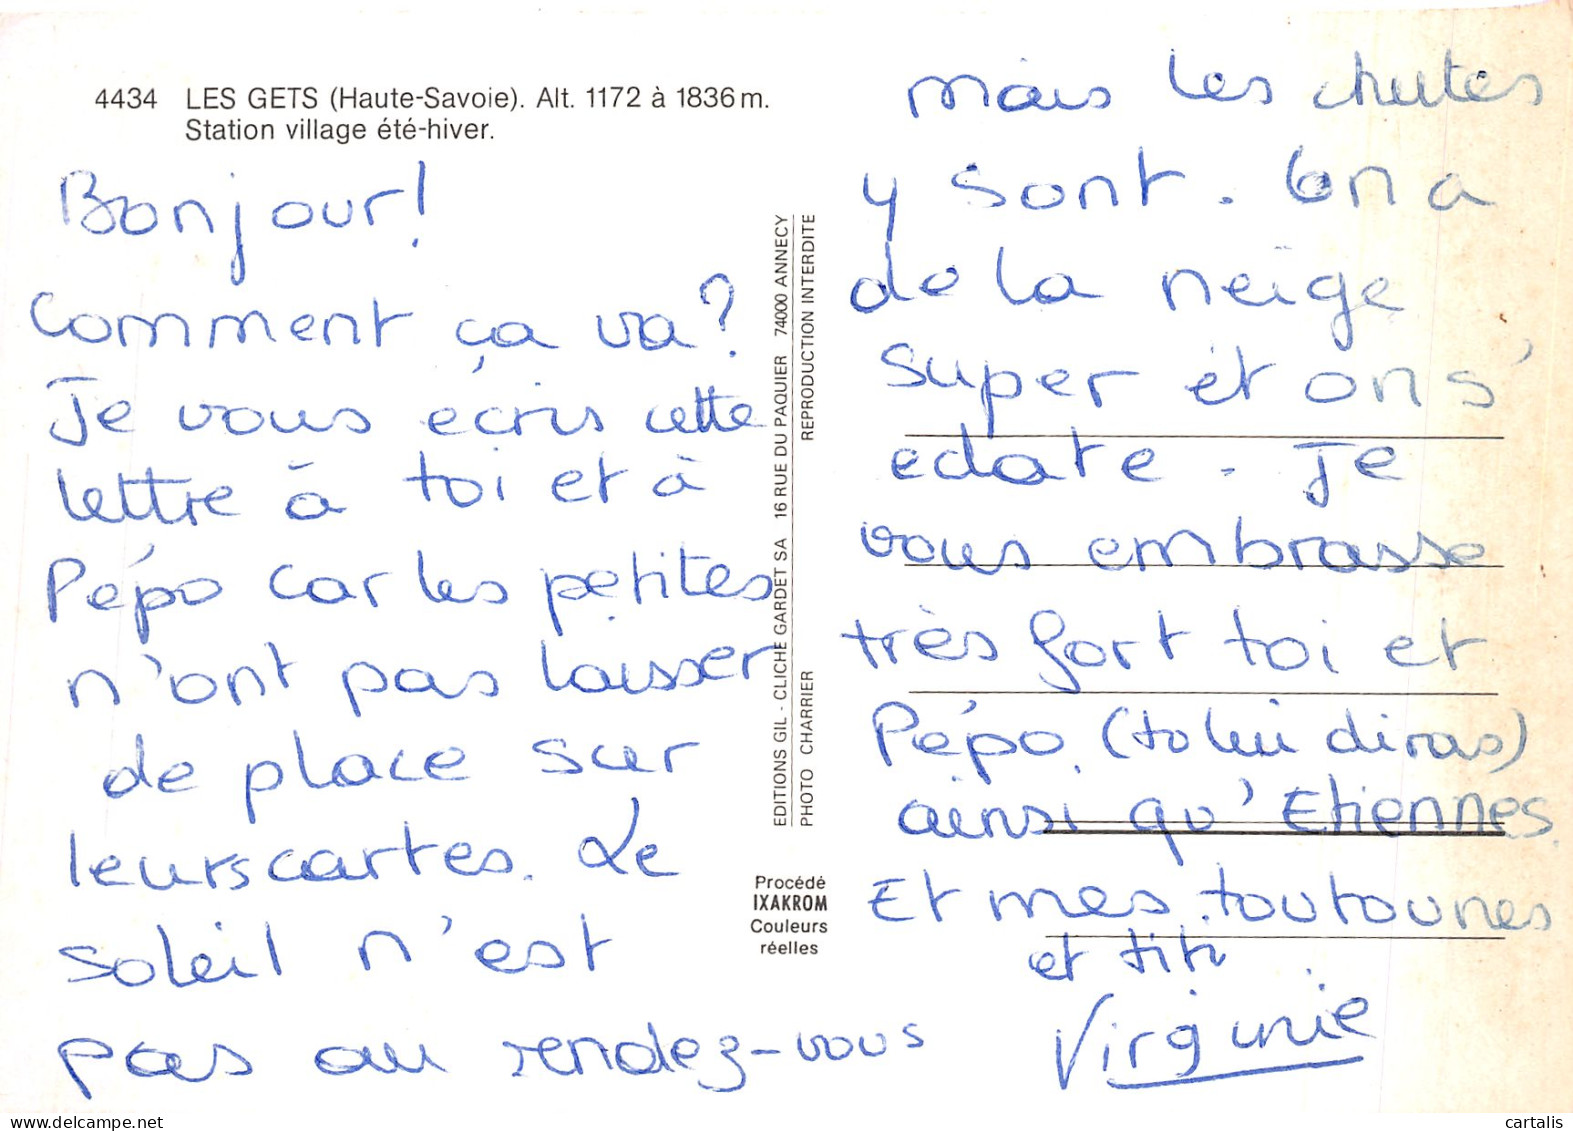 4434 LES GETS (Haute-Savoie). Alt. 1172 à 1836 m.
Station village été-hiver.
Bonjour!
Comment ça va?
Je vous écris cette
lettre à toi et à
Pépo car les petites
n'ont pas laisser
de place sur
leurs cartes. Le
soleil n'est
pas au rendez-vous
EDITIONS GIL - CLICHE GARDET SA 16 RUE DU PAQUIER 74000 ANNECY
PHOTO CHARRIER REPRODUCTION INTERDITE
Procédé
IXAKROM
Couleurs
réelles
mais les chutes
y sont. On a
de la neige
super et on s'
eclate. Je
vous embrasse
très fort toi et
Pépo. (tu lui diras)
ainsi qu'Etiennes.
Et mes toutounes
et titi
Virginie
cartalis.com
cartalis